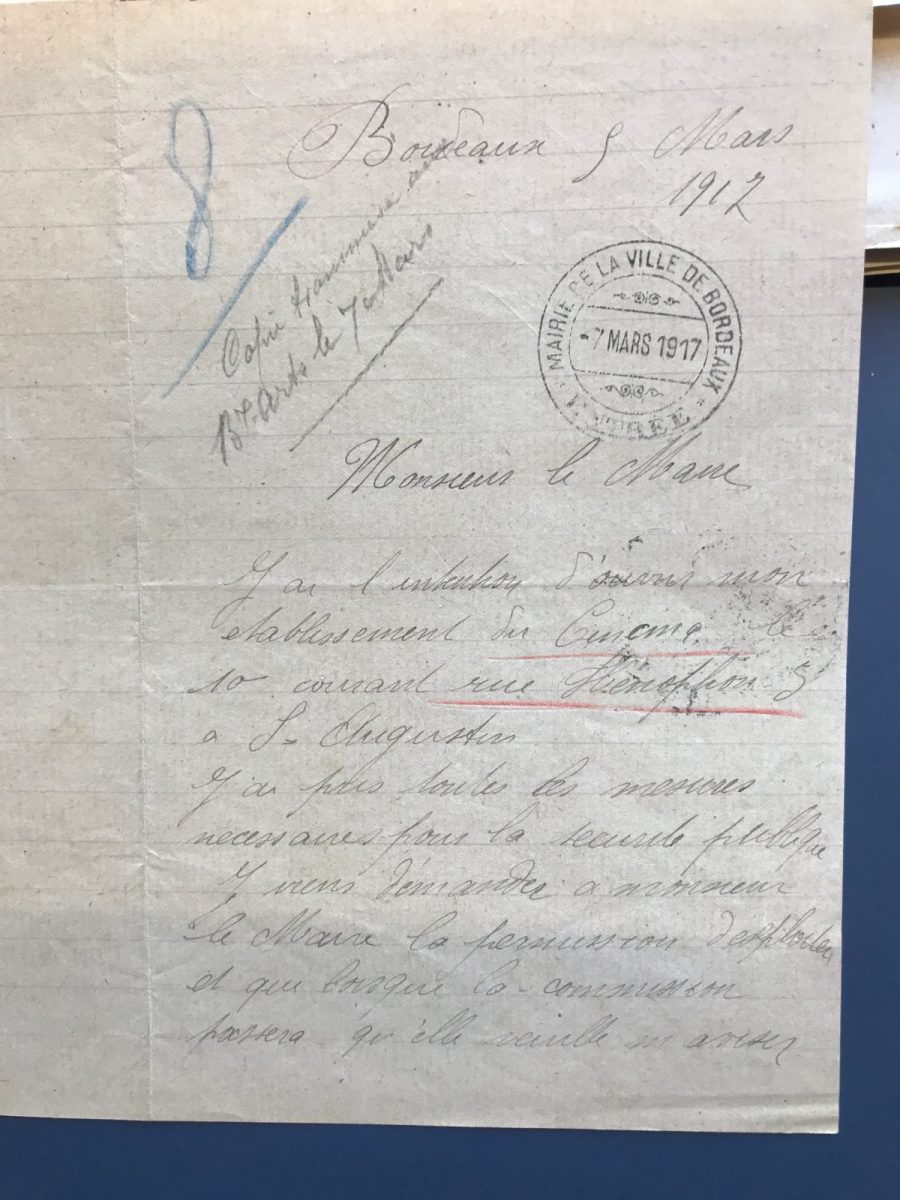 8
Bordeaux 5 Mars
1917
Copie transmise aux
Bx Arts le 7 Mars
MAIRIE DE LA VILLE DE BORDEAUX
-7 MARS 1917
ENTRÉE
Monsieur le Maire
J ai l intention d'ouvrir mon
etablissement du Cinema le
10 courant rue Xénophon 5
a St Augustin
J ai pris toutes les mesures
necessaires pour la securite publique
J viens demander a monsieur
le Maire la permission d'exploiter
et que lorsque la commission
passera qu'elle veuille m aviser